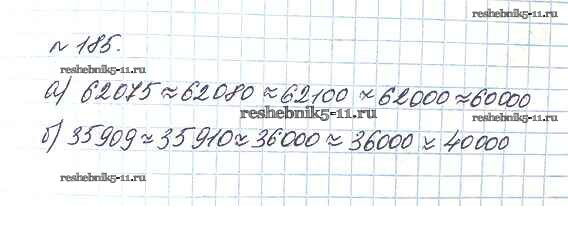 reshebnik5-11.ru
№ 185.
reshebnik5-11.ru
reshebnik5-11.ru
а) 62075≈62080≈62100≈62000≈60000
reshebnik5-11.ru
б) 35909≈35910≈36000≈36000≈40000
reshebnik5-11.ru
reshebnik5-11.ru